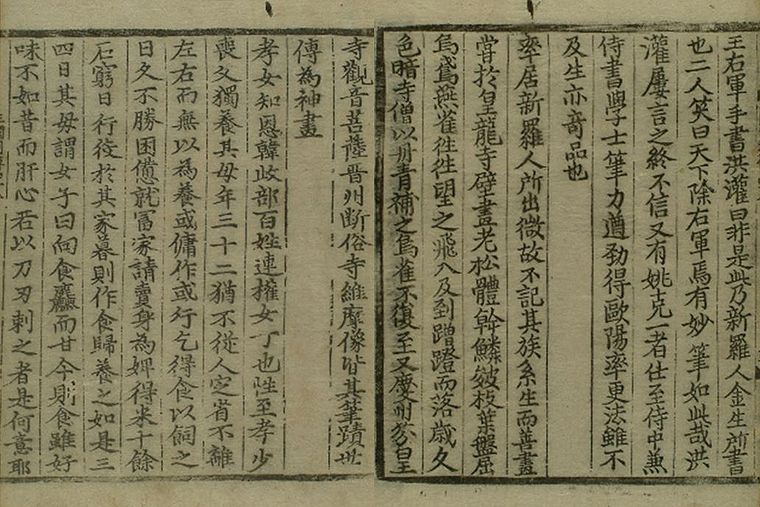 王右軍手書洪灌曰非是此乃新羅人金生所書
也二人笑曰天下除右軍焉有妙筆如此哉洪
灌屢言之終不信又有姚克一者仕至侍中兼
侍書學士筆力遒勁得歐陽率更法雖不
及生亦奇品也
率居新羅人所出微故不記其族系生而善畫
嘗於皇龍寺壁畫老松體幹鱗皴枝葉盤屈
烏鳶燕雀往往望之飛入及到蹭蹬而落歳久
色暗寺僧以丹青補之烏雀不復至又慶州芬皇
寺觀音菩薩晉州斷俗寺維摩像皆其筆蹟世
傳為神畫
孝女知恩韓歧部百姓連權女子也性至孝少
喪父獨養其母年三十二猶不從人定省不離
左右而無以為養或傭作或行乞得食以飼之
日久不勝困憊就冨家請賣身為婢得米十餘
石窮日行役於其家暮則作食歸養之如是三
四日其母謂女子曰向食麤而甘今則食雖好
味不如昔而肝心若以刀刃刺之者是何意耶